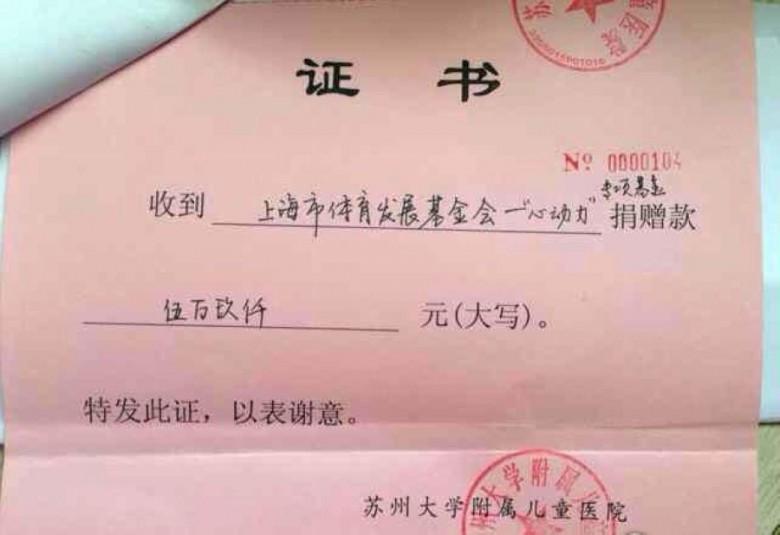 3205015901016
证书
Nº 0000104
专项基金
收到 上海市体育发展基金会-"心动力" 捐赠款
伍百玖仟 元(大写)。
特发此证,以表谢意。
大学附属儿
苏州大学附属儿童医院